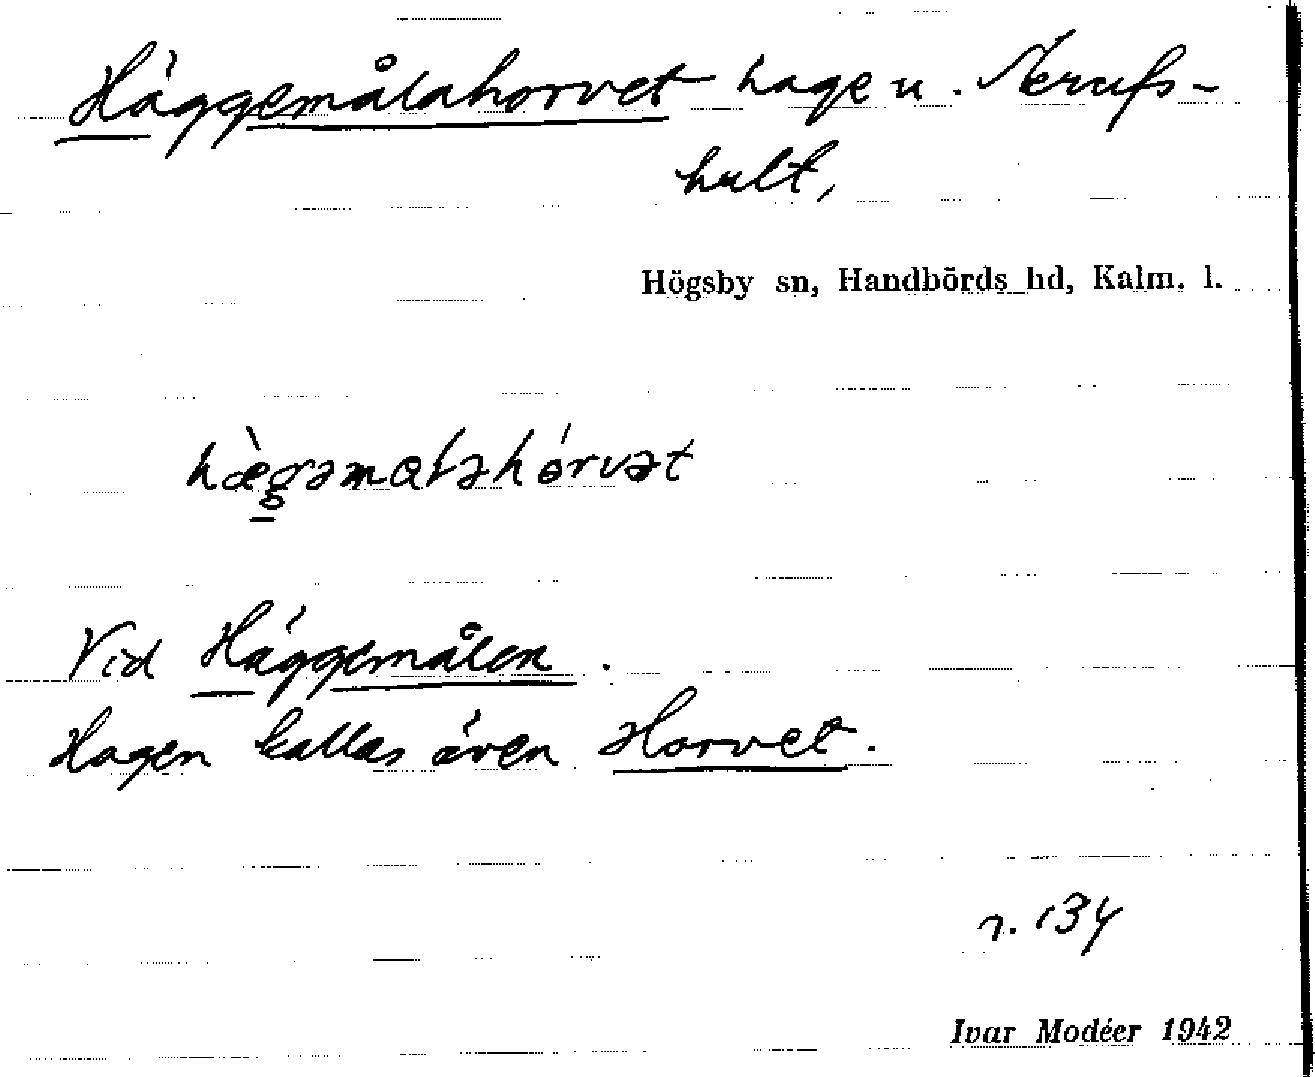 Häggemålahorvet hage u. Aerufs-
hult,
Högsby sn, Handbörds hd, Kalm. l.
hæ̀gəmalahórvət
Vid Häggemålen.
Hagen kallas även Horvet.
r. 134
Ivar Modéer 1942